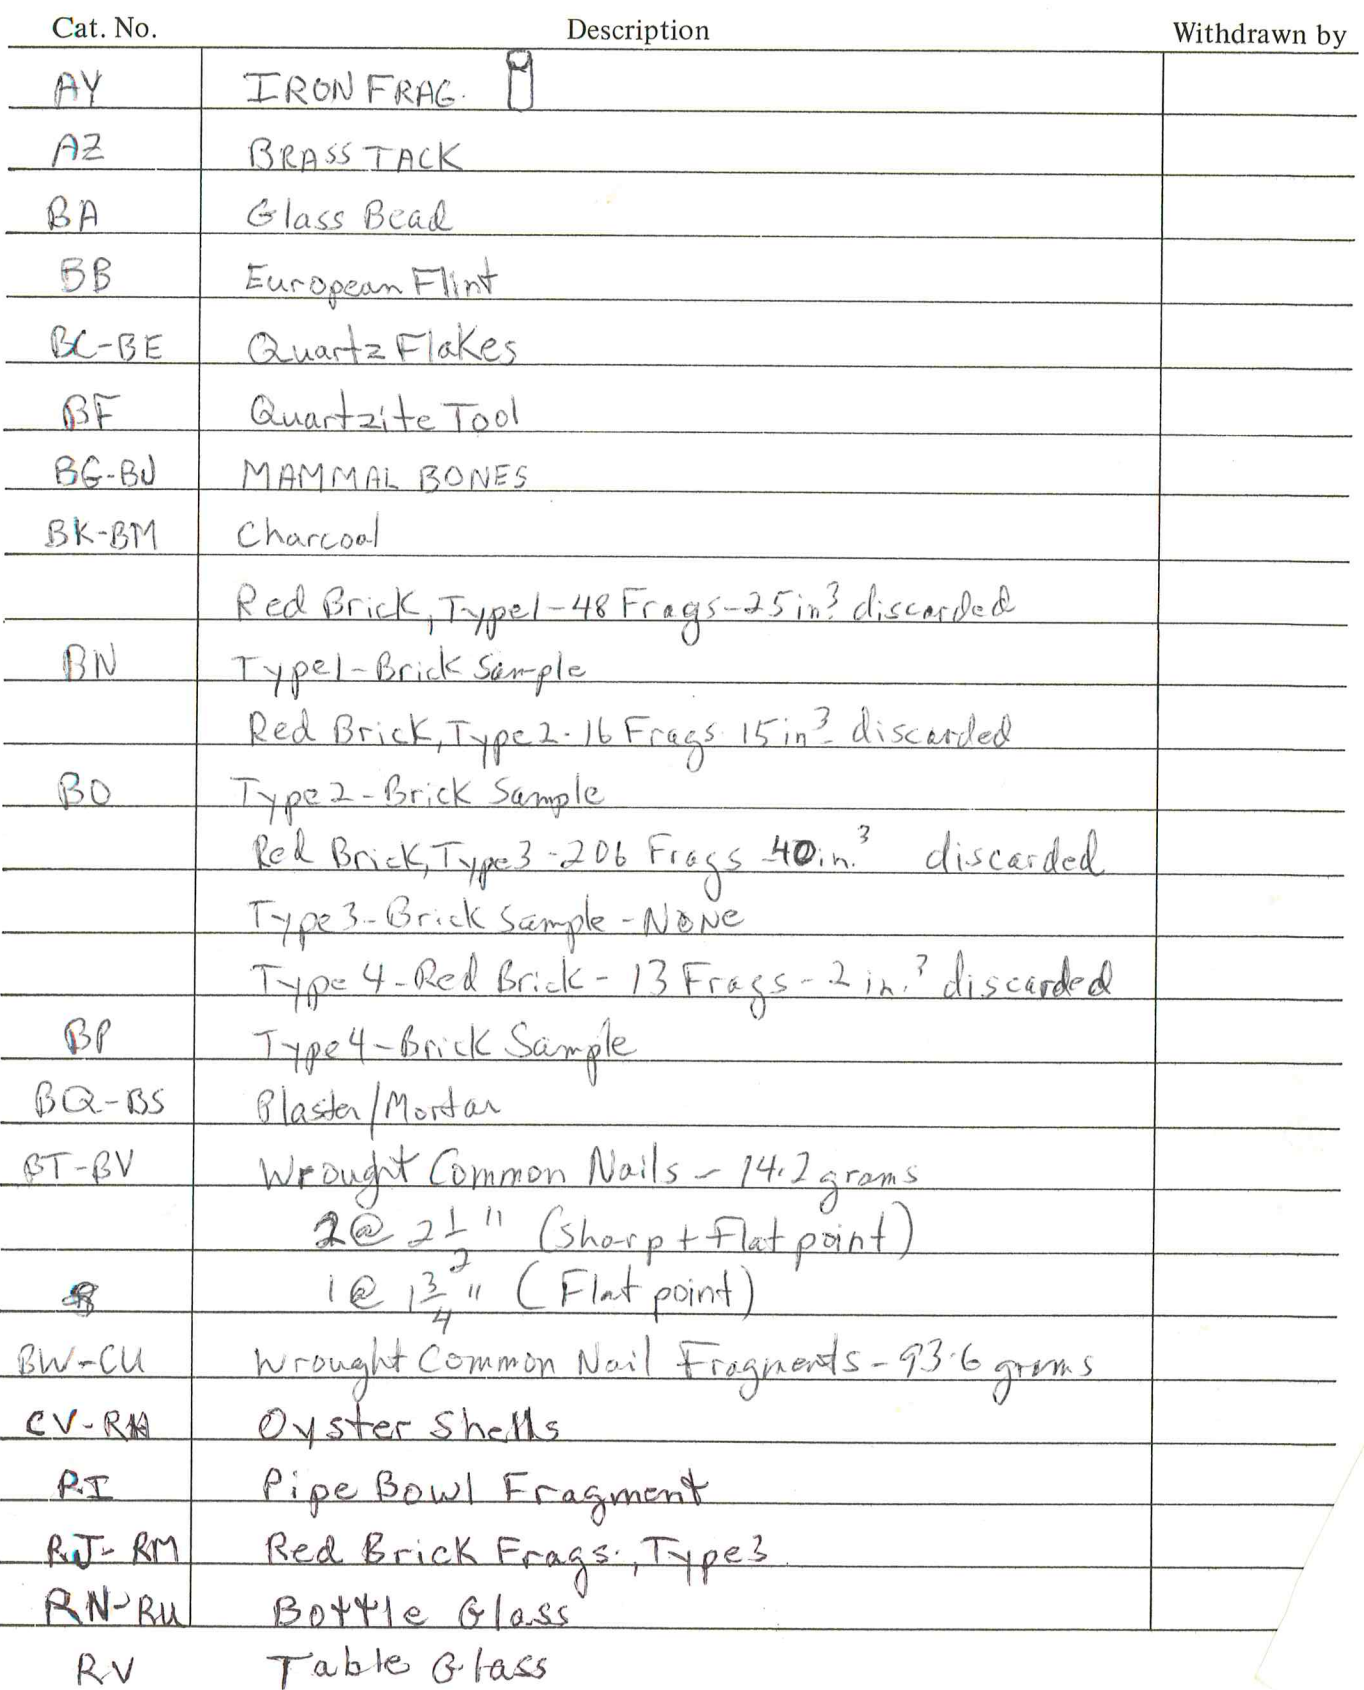 Cat. No. Description Withdrawn by
AY IRON FRAG.
AZ BRASS TACK
BA Glass Bead
BB European Flint
BC-BE Quartz Flakes
BF Quartzite Tool
BG-BJ MAMMAL BONES
BK-BM Charcoal
Red Brick, Type 1-48 Frags-25 in.³ discarded
BN Type 1-Brick Sample
Red Brick, Type 2-16 Frags 15 in.³ discarded
BO Type 2-Brick Sample
Red Brick, Type 3-206 Frags-40 in.³ discarded
Type 3-Brick Sample-NONE
Type 4-Red Brick-13 Frags-2 in.³ discarded
BP Type 4-Brick Sample
BQ-BS Plaster/Mortar
BT-BV Wrought Common Nails-14.2 grams
2@ 2 1/2" (sharp + Flat point)
1@ 1 3/4" (Flat point)
BW-CU Wrought Common Nail Fragments-93.6 grams
CV-RH Oyster Shells
RI Pipe Bowl Fragment
RJ-RM Red Brick Frags., Type 3
RN-RU Bottle Glass
RV Table Glass